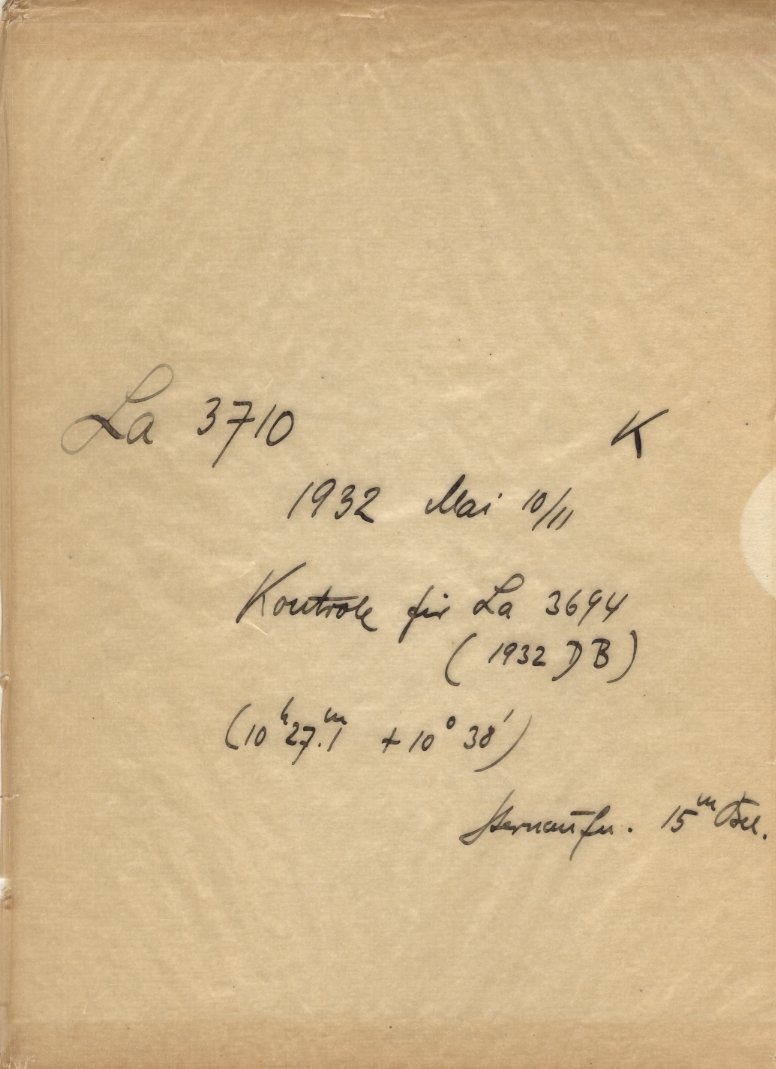 La 3710 K
1932 Mai 10/11
Kontrole für La 3694
(1932 DB)
(10ʰ27.ᵐ1 +10° 38')
Sternaufn. 15ᵐ Bel.